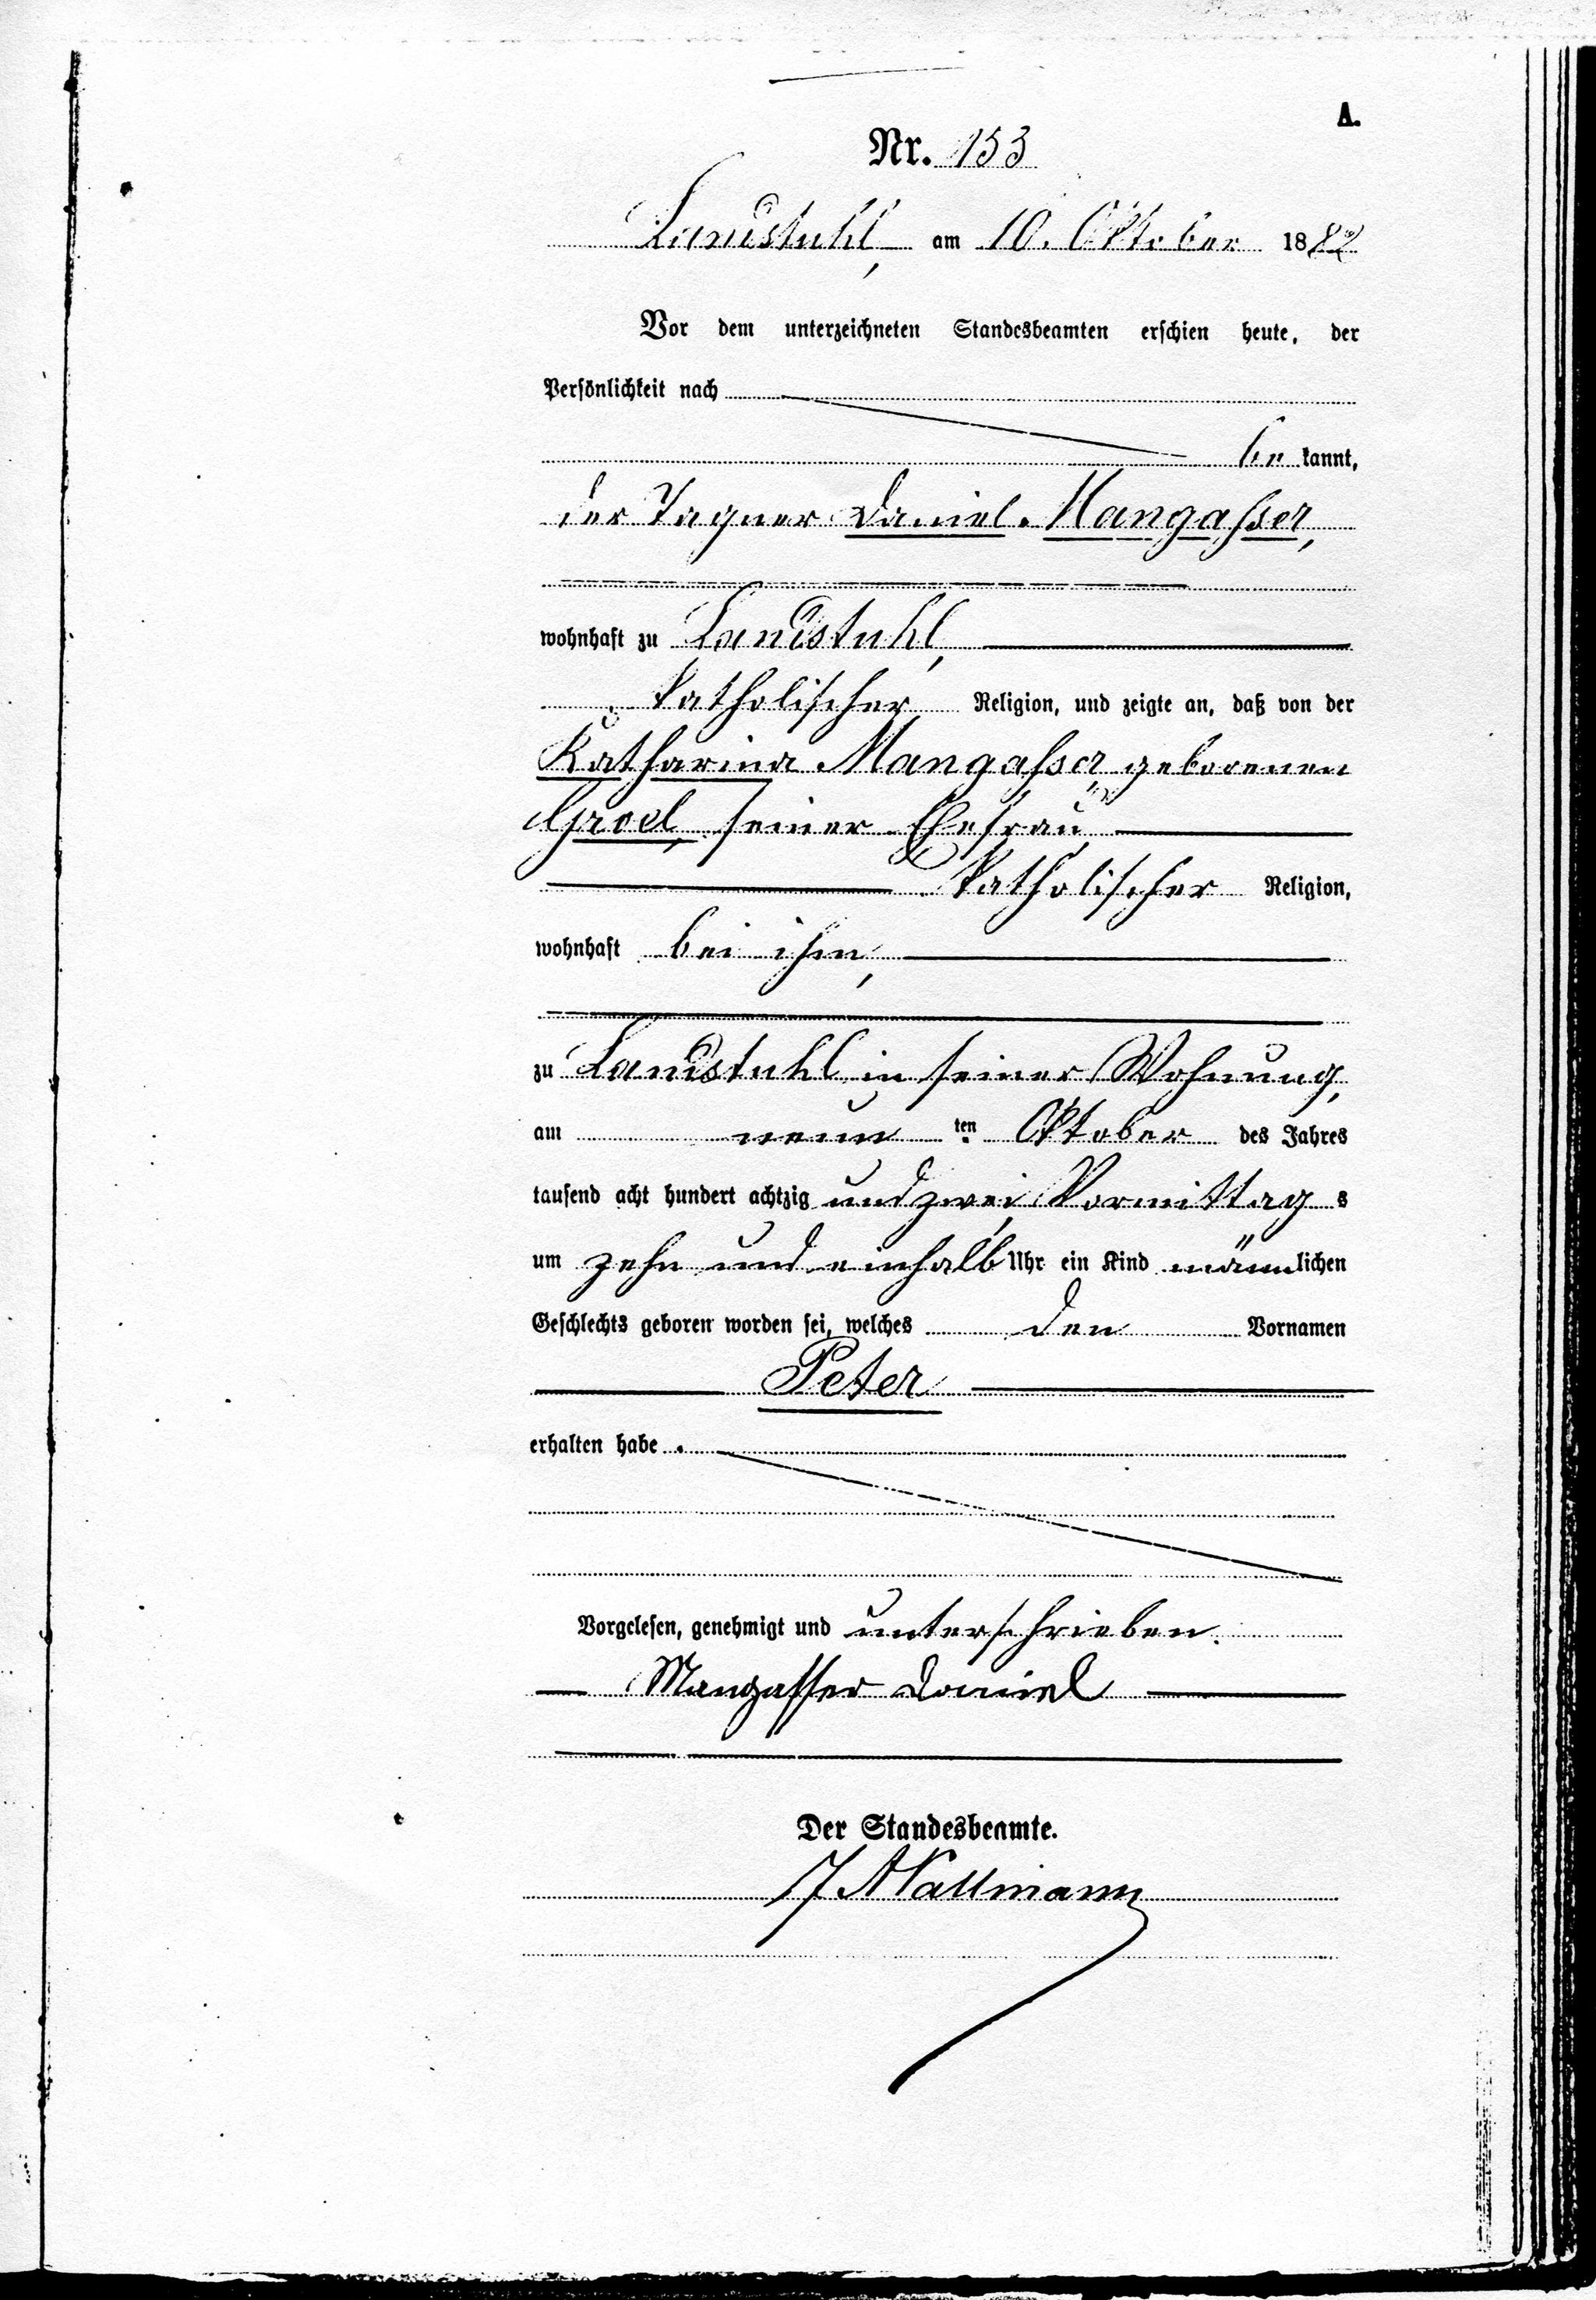 A.
Nr. 153
Landstuhl, am 10. Oktober 1882
Vor dem unterzeichneten Standesbeamten erschien heute, der
Persönlichkeit nach
be kannt,
der Tagner Daniel Mangasser,
wohnhaft zu Landstuhl,
katholischer Religion, und zeigte an, daß von der
Katharina Mangasser, geborenen
Groel, seiner Ehefrau,
katholischer Religion,
wohnhaft bei ihm,
zu Landstuhl in seiner Wohnung,
am neun ten Oktober des Jahres
tausend acht hundert achtzig und zwei, Vormittag s
um zehn und einhalb Uhr ein Kind männlichen
Geschlechts geboren worden sei, welches den Vornamen
Peter
erhalten habe.
Vorgelesen, genehmigt und unterschrieben.
Mangasser Daniel
Der Standesbeamte.